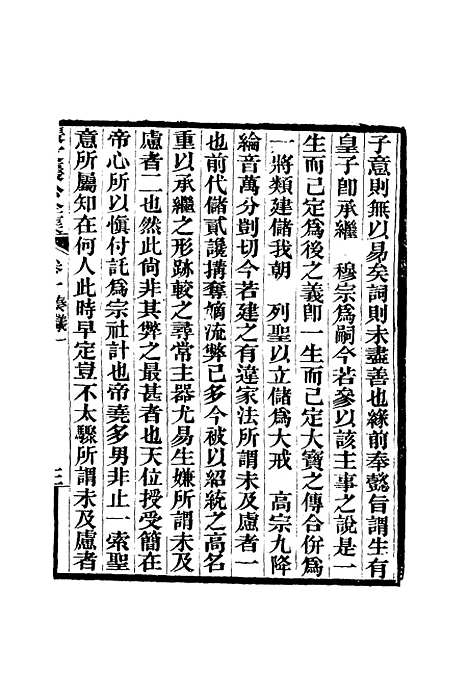 子意則無以易矣詞則未盡善也緣前奉懿旨謂生有
皇子卽承繼　穆宗爲嗣今若參以該主事之說是一
生而已定爲後之義卽一生而已定大寶之傳合倂爲
一將類建儲我朝　列聖以立儲爲大戒　高宗九降
綸音萬分剴切今若建之有違家法所謂未及慮者一
也前代儲貳讒搆奪嫡流弊已多今被以紹統之高名
重以承繼之形跡較之尋常主器尤易生嫌所謂未及
慮者二也然此尙非其弊之最甚者也天位授受簡在
帝心所以愼付託爲宗社計也帝堯多男非止一索聖
意所屬知在何人此時早定豈不太驟所謂未及慮者
奏議一
三